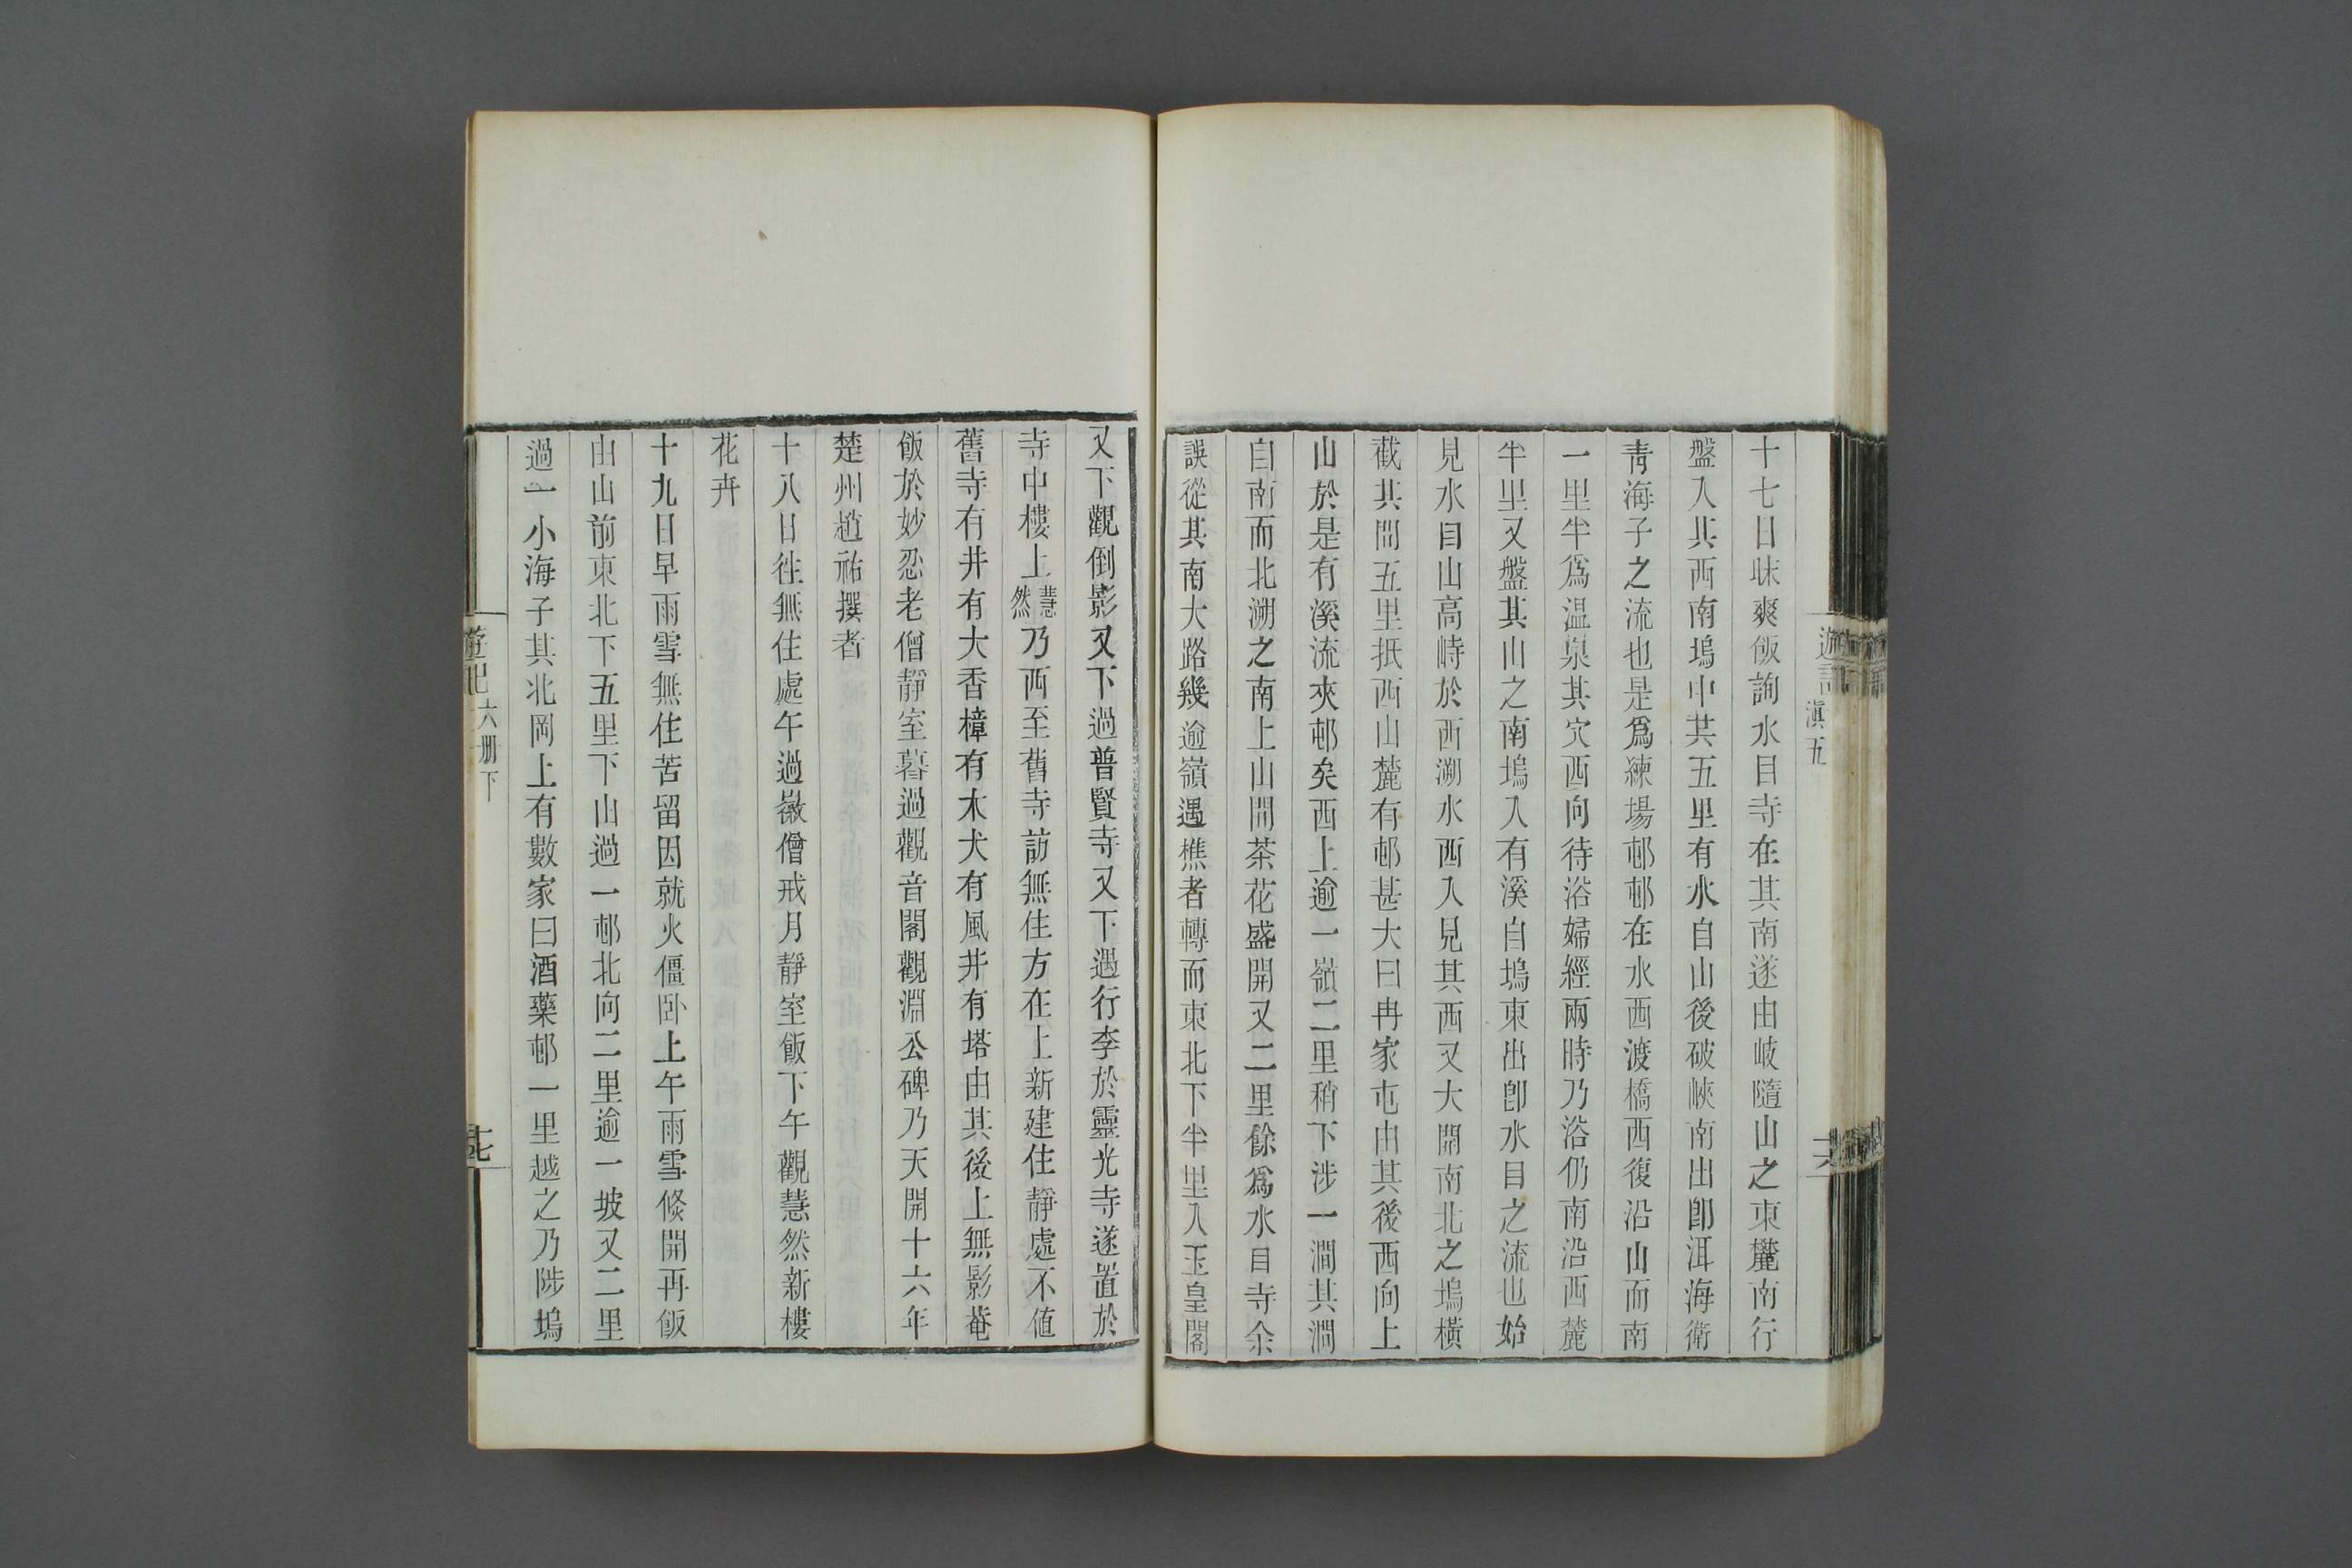 遊記
滇五
十六
十七日昧爽飯詢水目寺在其南遂由岐隨山之東麓南行
盤入其西南塢中共五里有水自山後破峽南出卽洱海衛
青海子之流也是爲練場邨邨在水西渡橋西復沿山而南
一里半爲温泉其穴西向待浴婦經兩時乃浴仍南沿西麓
半里又盤其山之南塢入有溪自塢東出卽水目之流也始
見水目山高峙於西溯水西入見其西又大開南北之塢橫
截其間五里抵西山麓有邨甚大曰冉家屯由其後西向上
山於是有溪流夾邨矣西上逾一嶺二里稍下涉一澗其澗
自南而北溯之南上山間茶花盛開又二里餘爲水目寺余
誤從其南大路幾逾嶺遇樵者轉而東北下半里入玉皇閣
又下觀倒影又下過普賢寺又下遇行李於靈光寺遂置於
寺中樓上慧然乃西至舊寺訪無住方在上新建住靜處不值
舊寺有井有大香樟有木犬有風井有塔由其後上無影菴
飯於妙忍老僧靜室暮過觀音閣觀淵公碑乃天開十六年
楚州趙祐撰者
十八日往無住處午過徽僧戒月靜室飯下午觀慧然新樓
花卉
十九日早雨雪無住苦留因就火僵卧上午雨雪倏開再飯
由山前東北下五里下山過一邨北向二里逾一坡又二里
過一小海子其北岡上有數家曰酒藥邨一里越之乃陟塢
遊記
六册下
十七